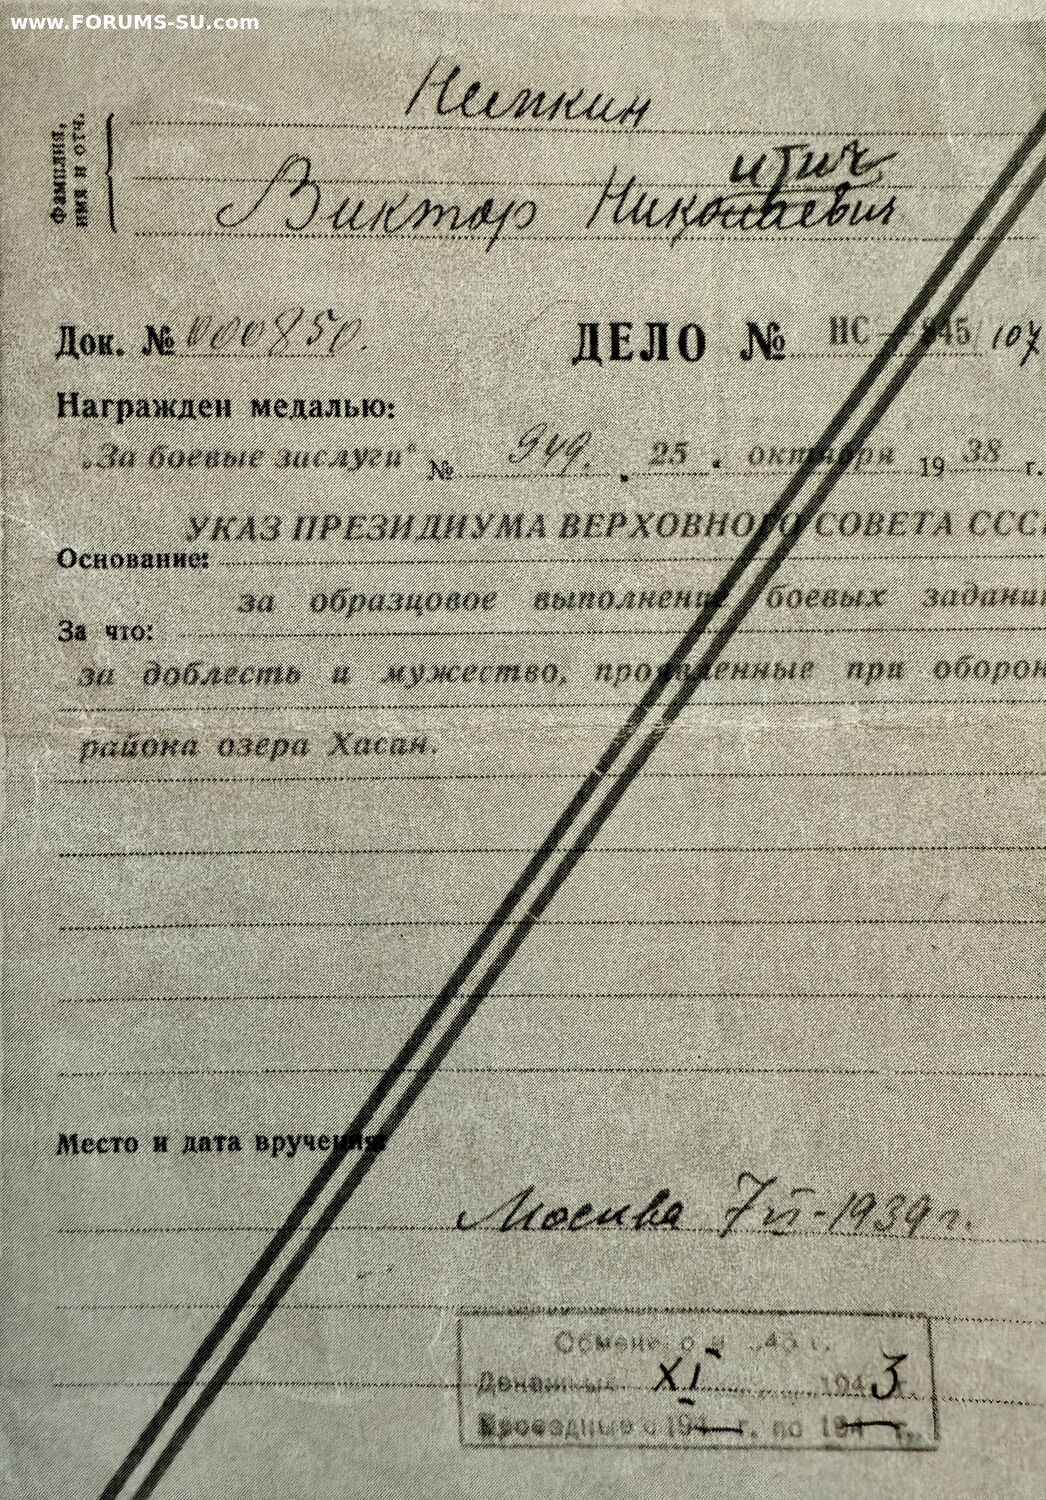 www.FORUMS-SU.com
Фамилия,
имя и отч.
Немкин
итич
Виктор Николаевич
Док. № 000850.
ДЕЛО № НС — 845/107
Награжден медалью:
„За боевые заслуги" № 949. 25. октября 1938 г.
УКАЗ ПРЕЗИДИУМА ВЕРХОВНОГО СОВЕТА ССС
Основание:
за образцовое выполнение боевых задани
За что:
за доблесть и мужество, проявленные при оборон
района озера Хасан.
Место и дата вручения:
Москва 7 VI - 1939 г.
Обменено 45 г.
Денежные XI 1943 г.
Проездные с 194— г. по 194— г.